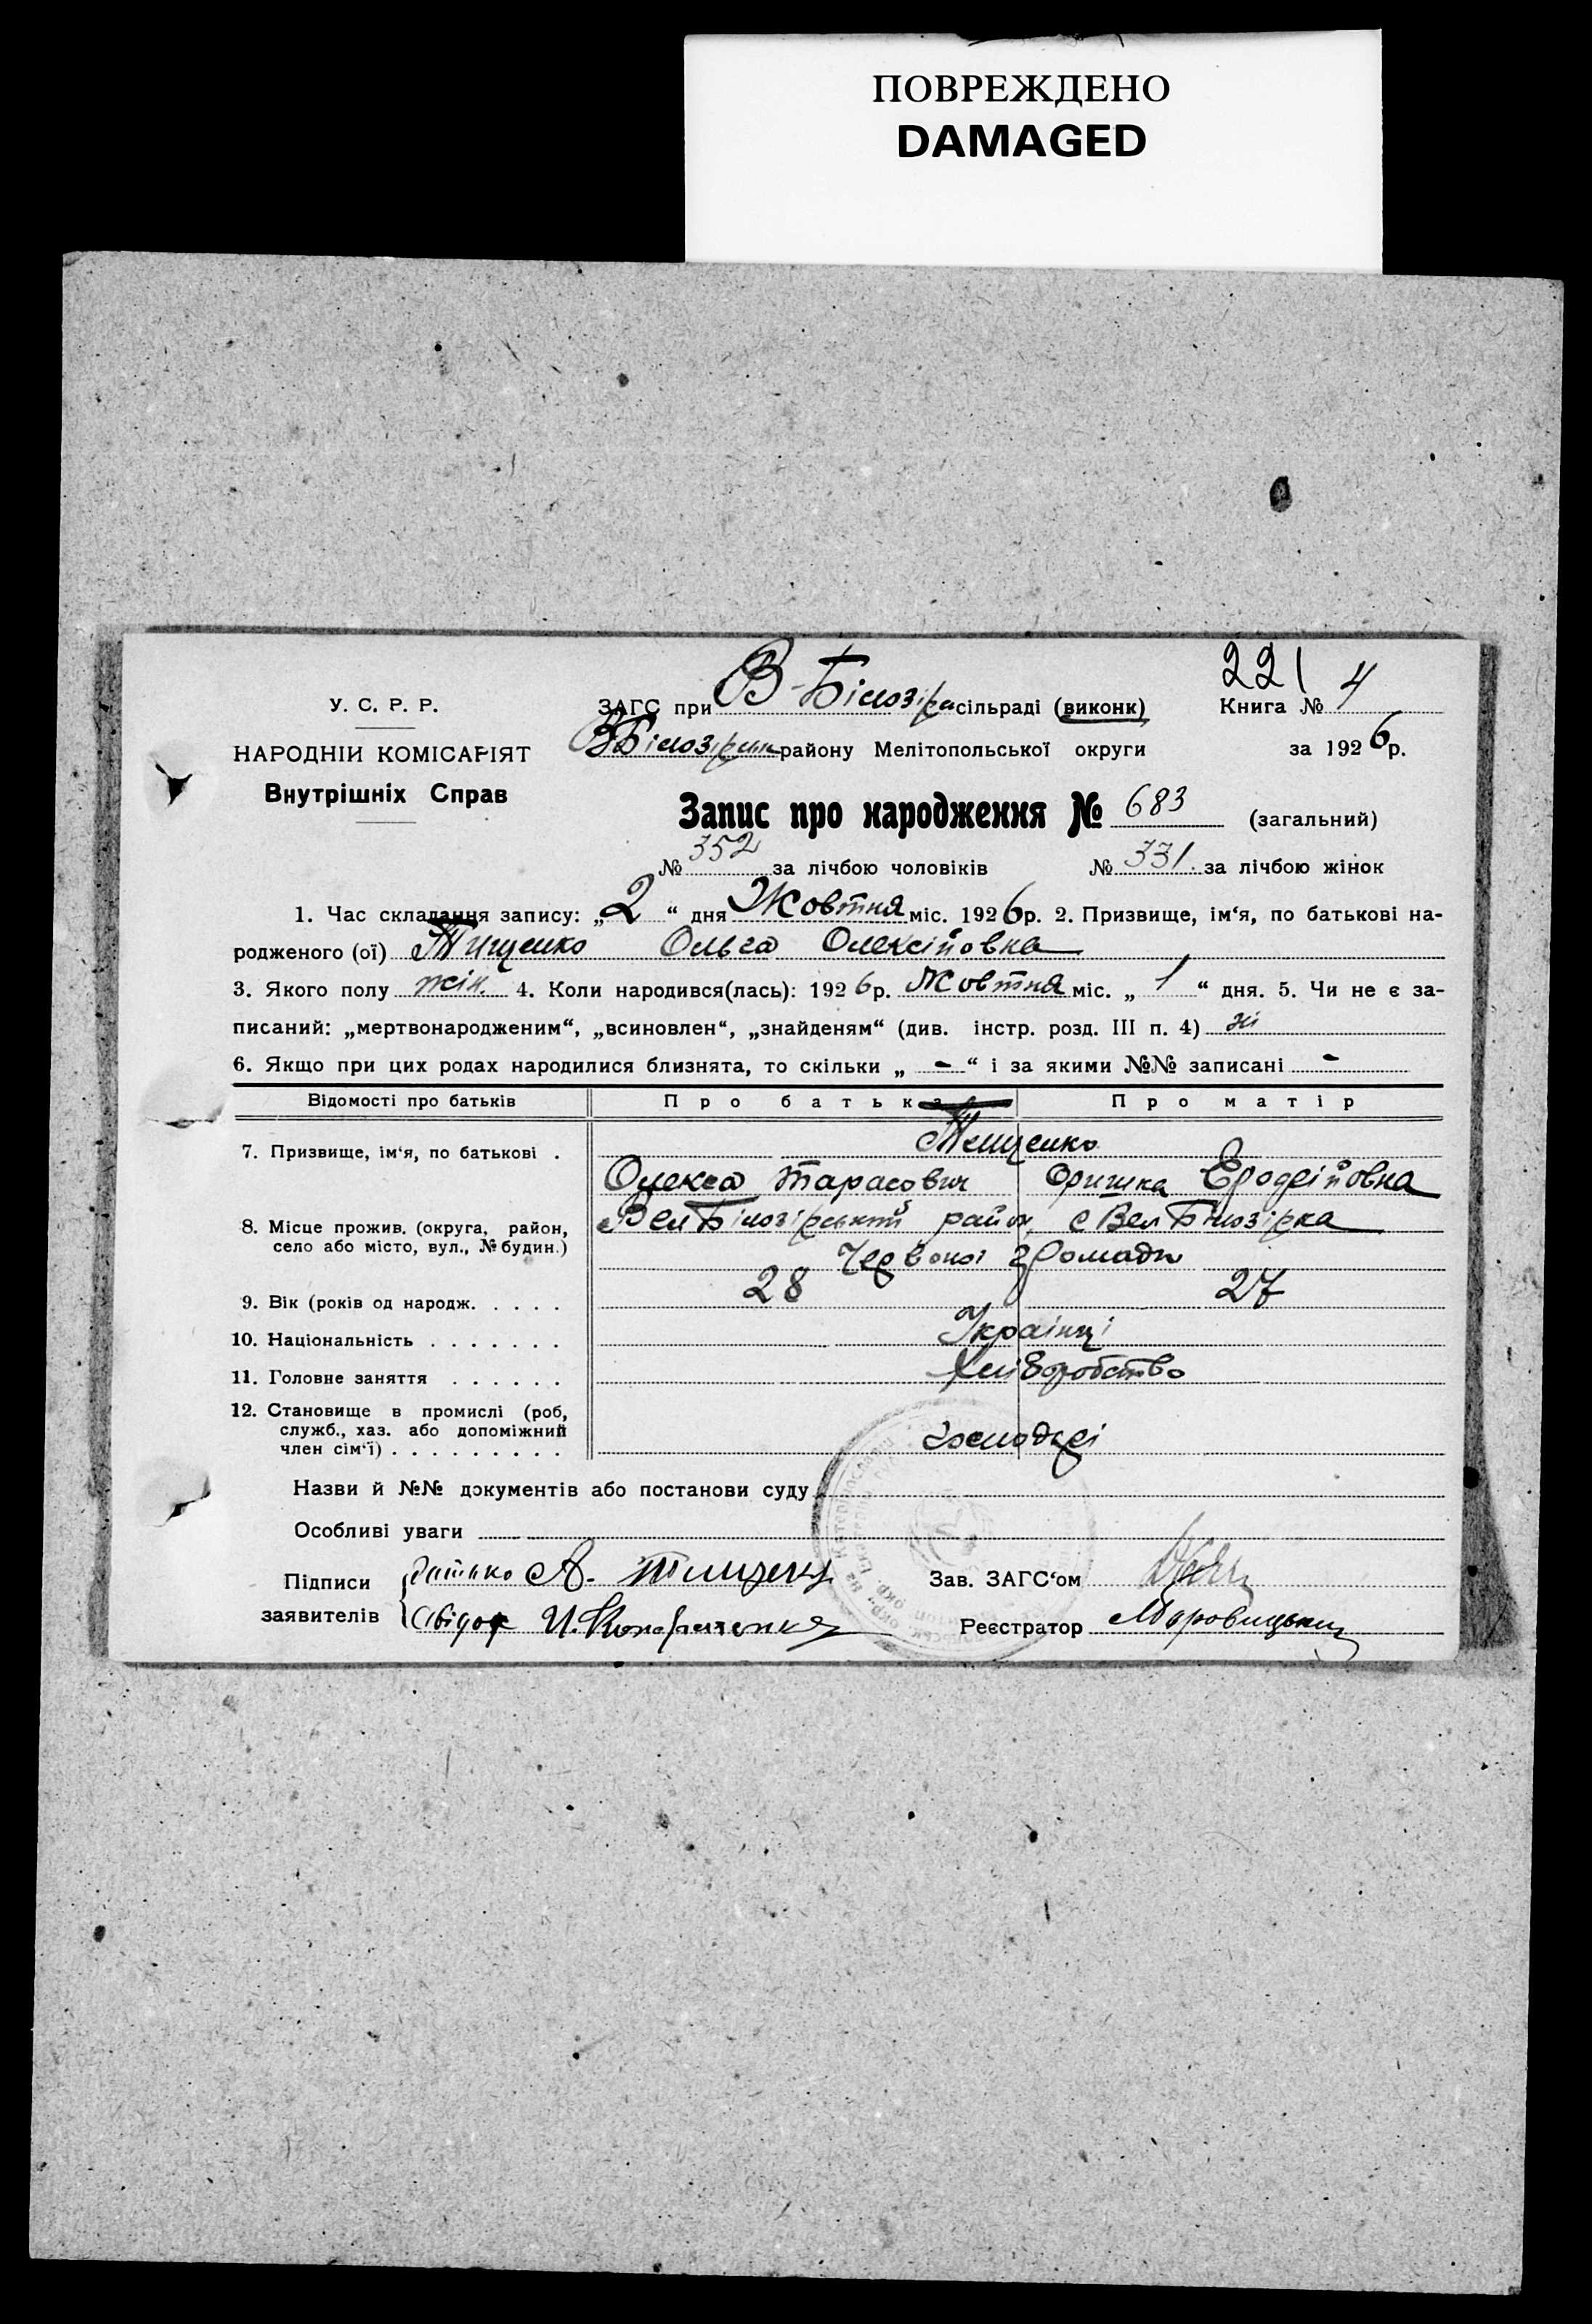 ПОВРЕЖДЕНО
DAMAGED
221
У. С. Р. Р.
ЗАГС при В-Білозірсільраді (виконк) Книга № 4
НАРОДНІЙ КОМІСАРІЯТ
В Білозірськ району Мелітопольської округи за 1926 р.
Внутрішніх Справ
Запис про народження № 683 (загальний)
№ 352 за лічбою чоловіків № 331. за лічбою жінок
1. Час складання запису: „2“ дня Жовтня міс. 1926 р. 2. Призвище, ім‘я, по батькові на-
родженого (ої) Тищенко Ольга Олексіївна
3. Якого полу жін. 4. Коли народився(лась): 1926 р. Жовтня міс. „1“ дня. 5. Чи не є за-
писаний: „мертвонародженим“, „всиновлен“, „знайденям“ (див. інстр. розд. III п. 4) ні
6. Якщо при цих родах народилися близнята, то скільки „-“ і за якими №№ записані -
Відомості про батьків Про батька Про матір
7. Призвище, ім‘я, по батькові . Тищенко
Олекса Тарасович Оришка
8. Місце прожив. (округа, район, село або місто, вул., № будин.) Вел Білозірський район, с Вел Білозірка
Червоної громади
9. Вік (років од народж. . . . . 28 27
10. Національність . . . . . . . Українці
11. Головне заняття . . . . . . Хліборобство
12. Становище в промислі (роб, служб., хаз. або допоміжний член сім‘ї) . . . . . . . . . господарі
Назви й №№ документів або постанови суду
Особливі уваги
Підписи заявителів батько А. Тищенко Зав. ЗАГС‘ом
Свідок И. Реєстратор